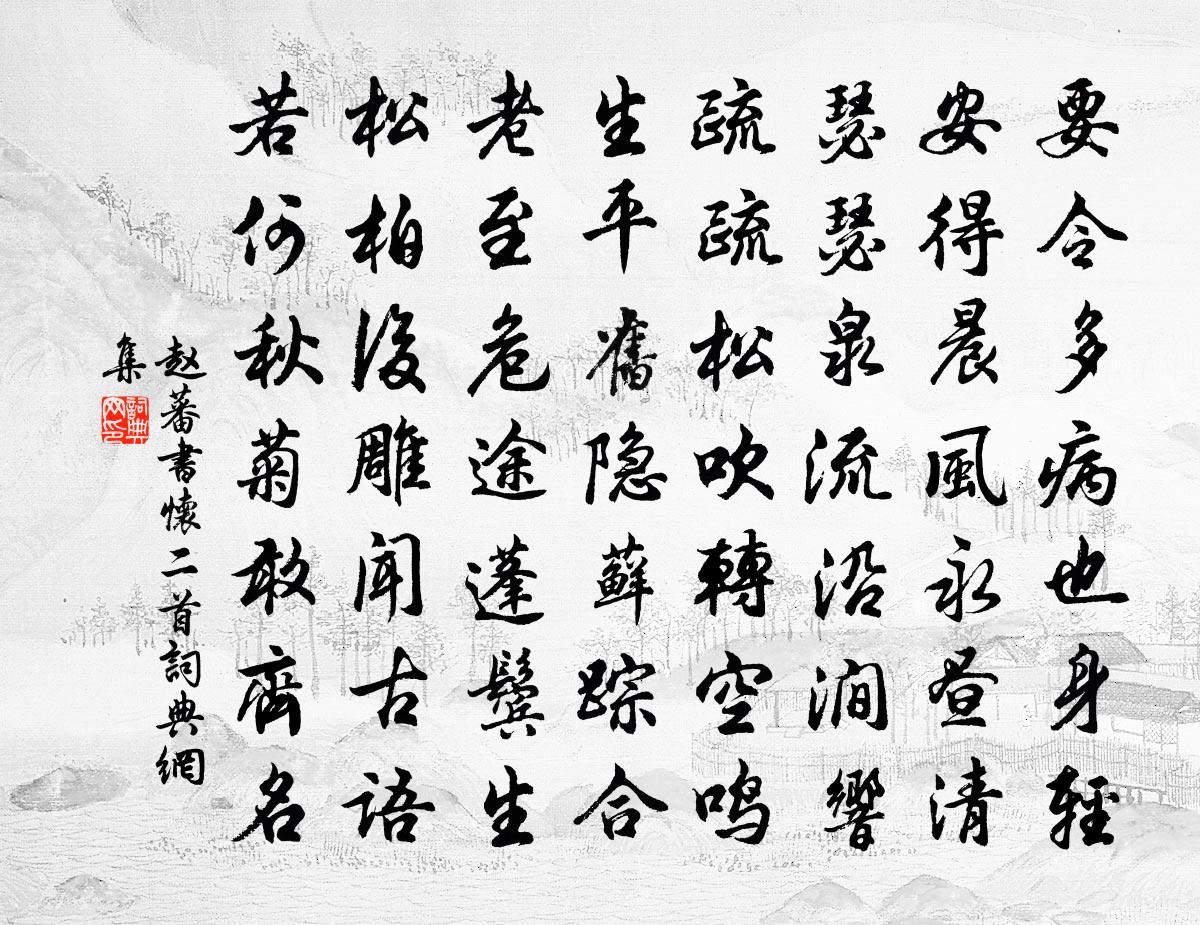 要令多病也身輕
安得晨風永昼清
瑟瑟泉流沿涧響
疏疏松吹轉空鸣
生平舊隐蘚踪合
老至危途蓬鬢生
松柏後雕闻古语
若何秋菊敢齊名
赵蕃書懷二首詞典網
集
詞典
网印